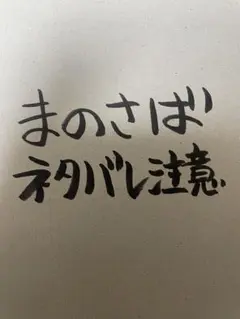 まのさば
ネタバレ注意